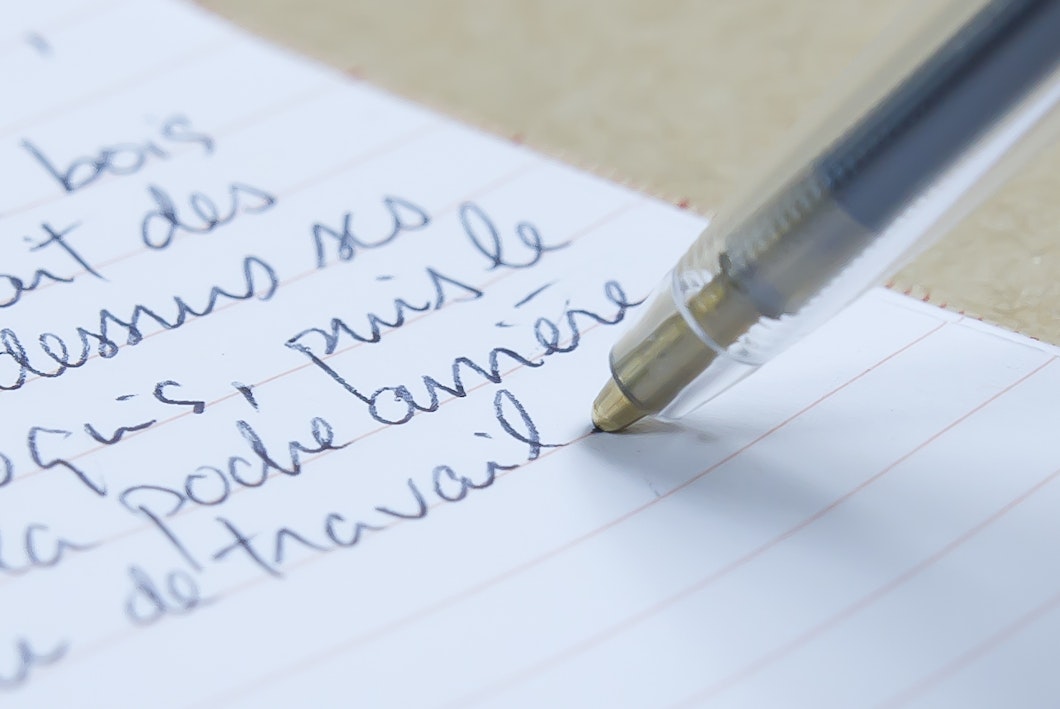 bois
ait des
dessus ses
oquis, puis le
a poche arrière
de travail